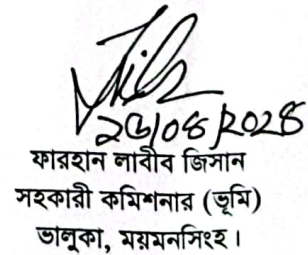 ২৫/০৪/২০২৪
ফারহান লাবীব জিসান
সহকারী কমিশনার (ভূমি)
ভালুকা, ময়মনসিংহ।